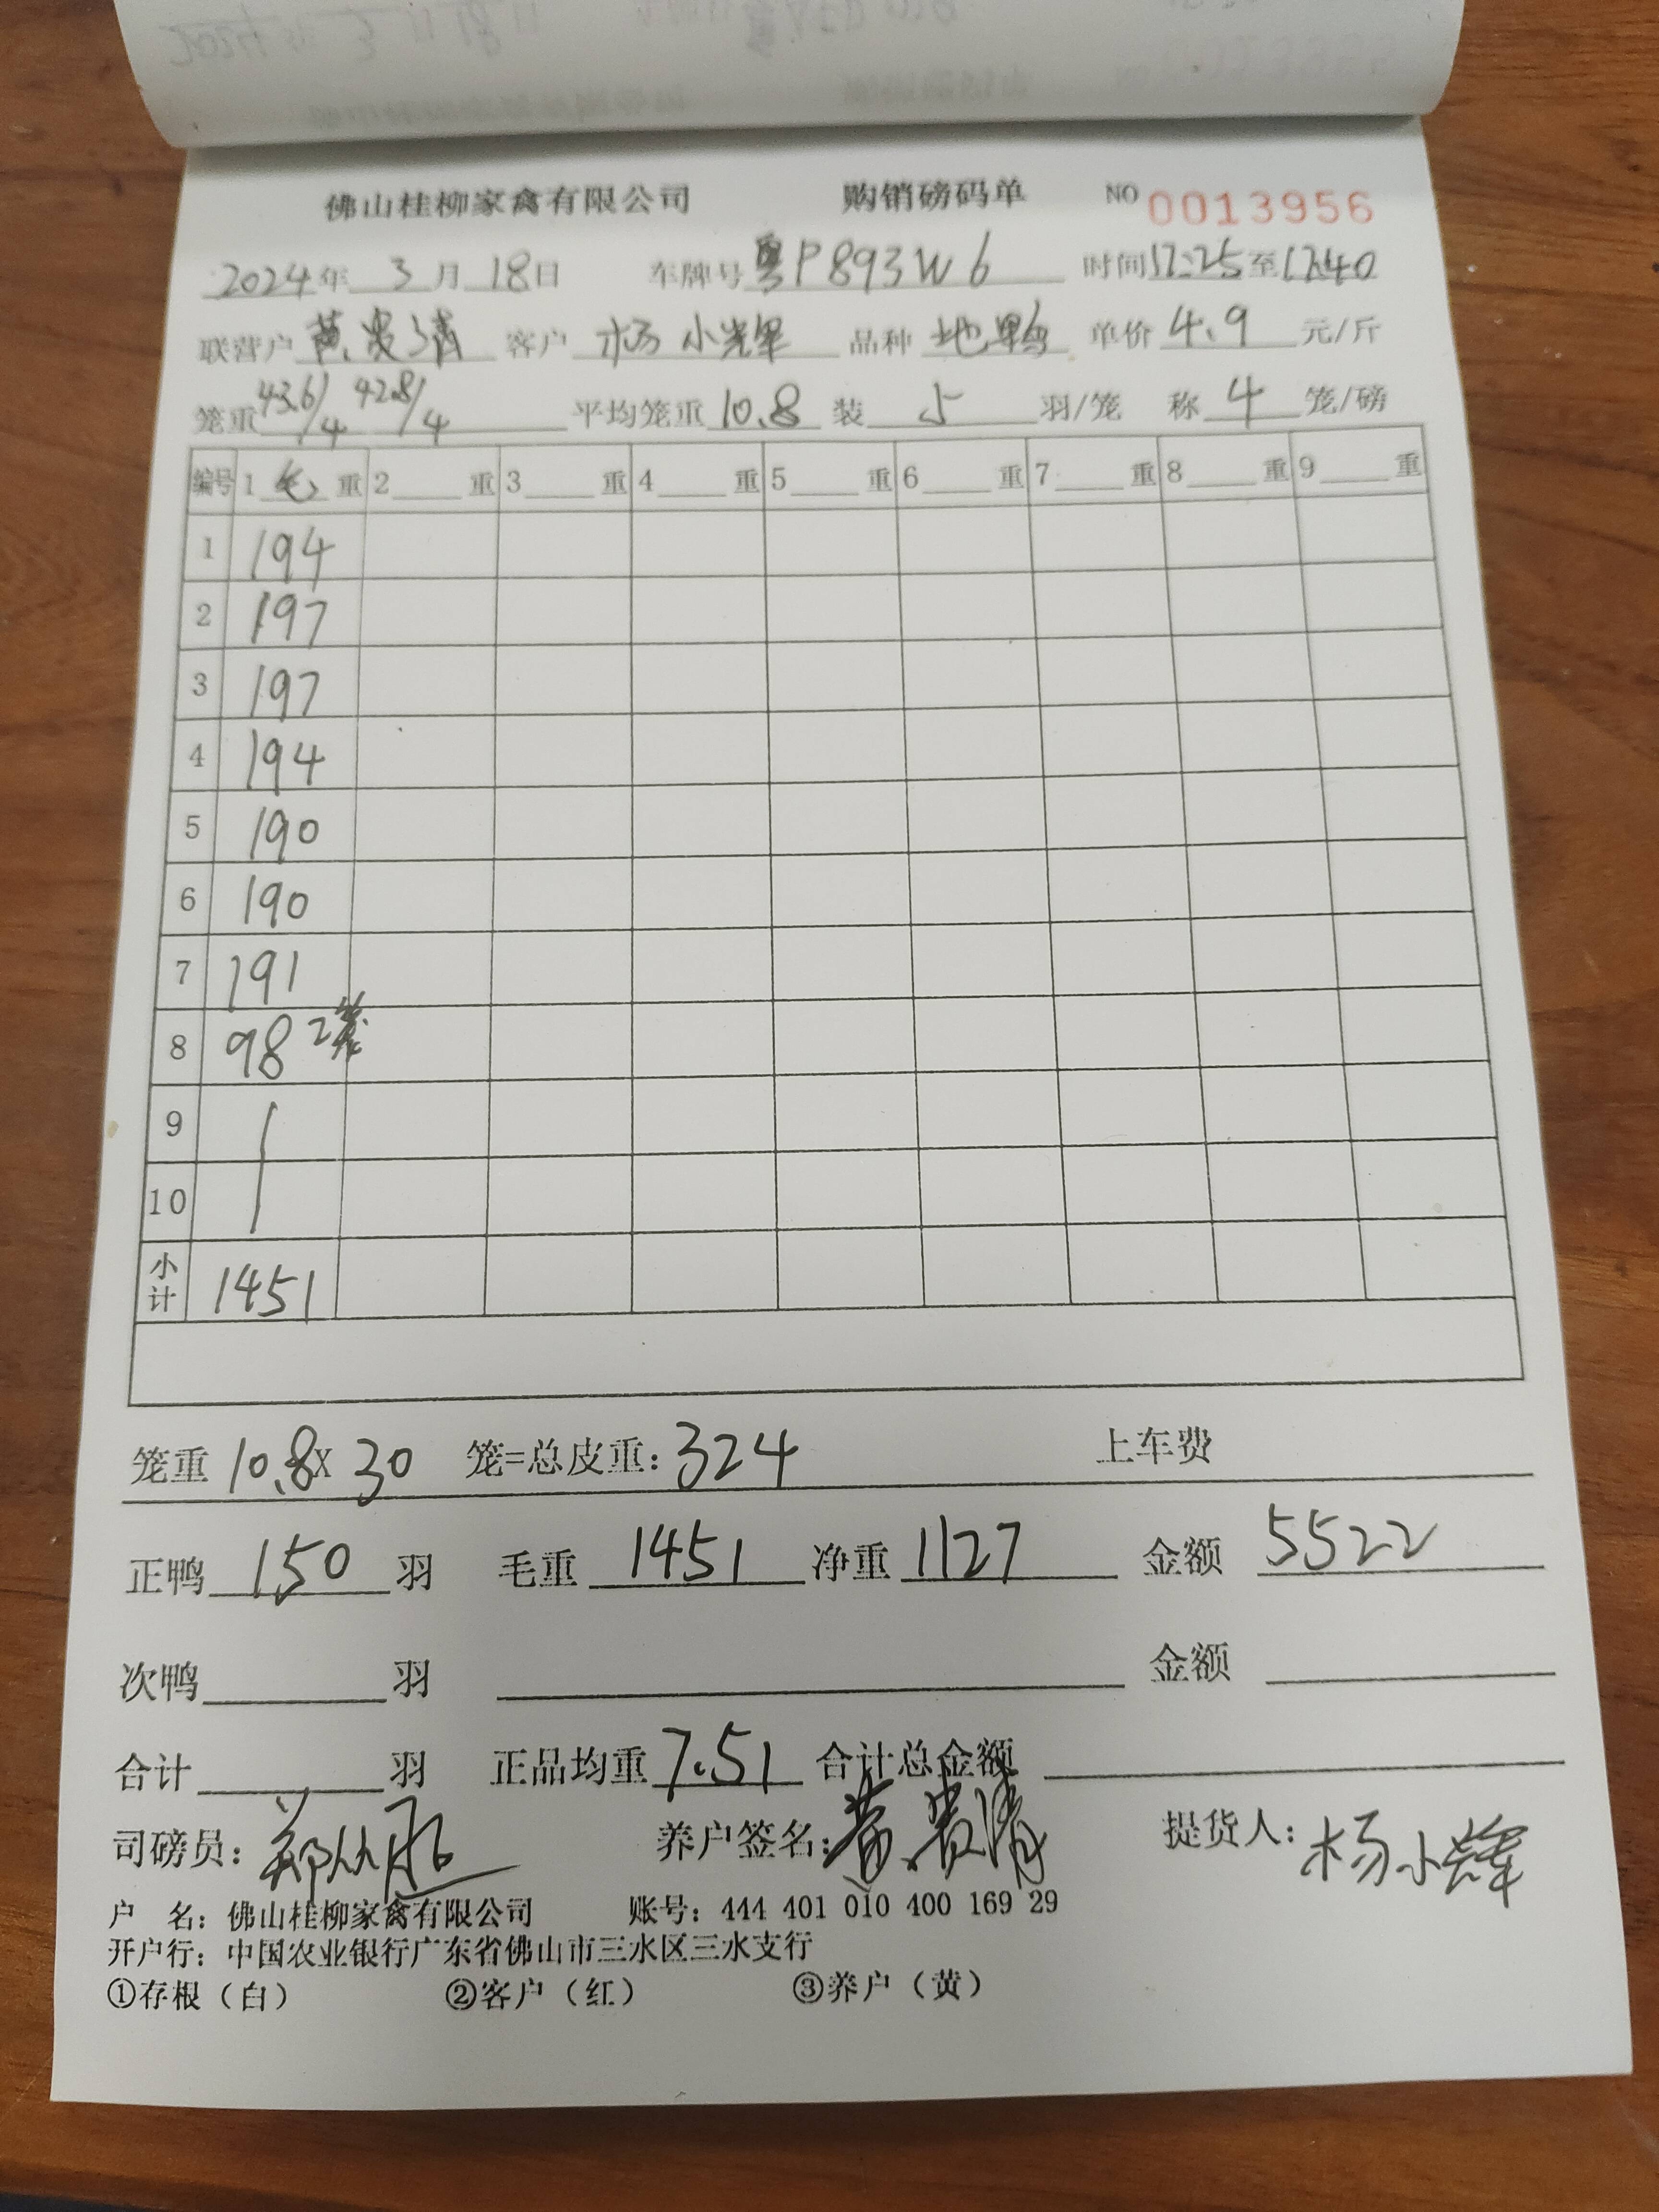 佛山桂柳家禽有限公司 购销磅码单 NO 0013956
2024年 3月 18日 车牌号 粤P893W6 时间 17:25 至 17:40
联营户 黄贵清 客户 杨小辉 品种 地鸭 单价 4.9 元/斤
笼重 43.6/4 42.8/4 平均笼重 10.8 装 5 羽/笼 称 4 笼/磅
编号 1 毛 重 2 重 3 重 4 重 5 重 6 重 7 重 8 重 9 重
1 194
2 197
3 197
4 194
5 190
6 190
7 191
8 98 2笼
9
10
小计 1451
笼重 10.8 X 30 笼=总皮重: 324 上车费
正鸭 150 羽 毛重 1451 净重 1127 金额 5522
次鸭 羽 金额
合计 羽 正品均重 7.51 合计总金额
司磅员: 养户签名: 黄贵清 提货人: 杨小辉
户 名: 佛山桂柳家禽有限公司 账号: 444 401 010 400 169 29
开户行: 中国农业银行广东省佛山市三水区三水支行
①存根（白） ②客户（红） ③养户（黄）